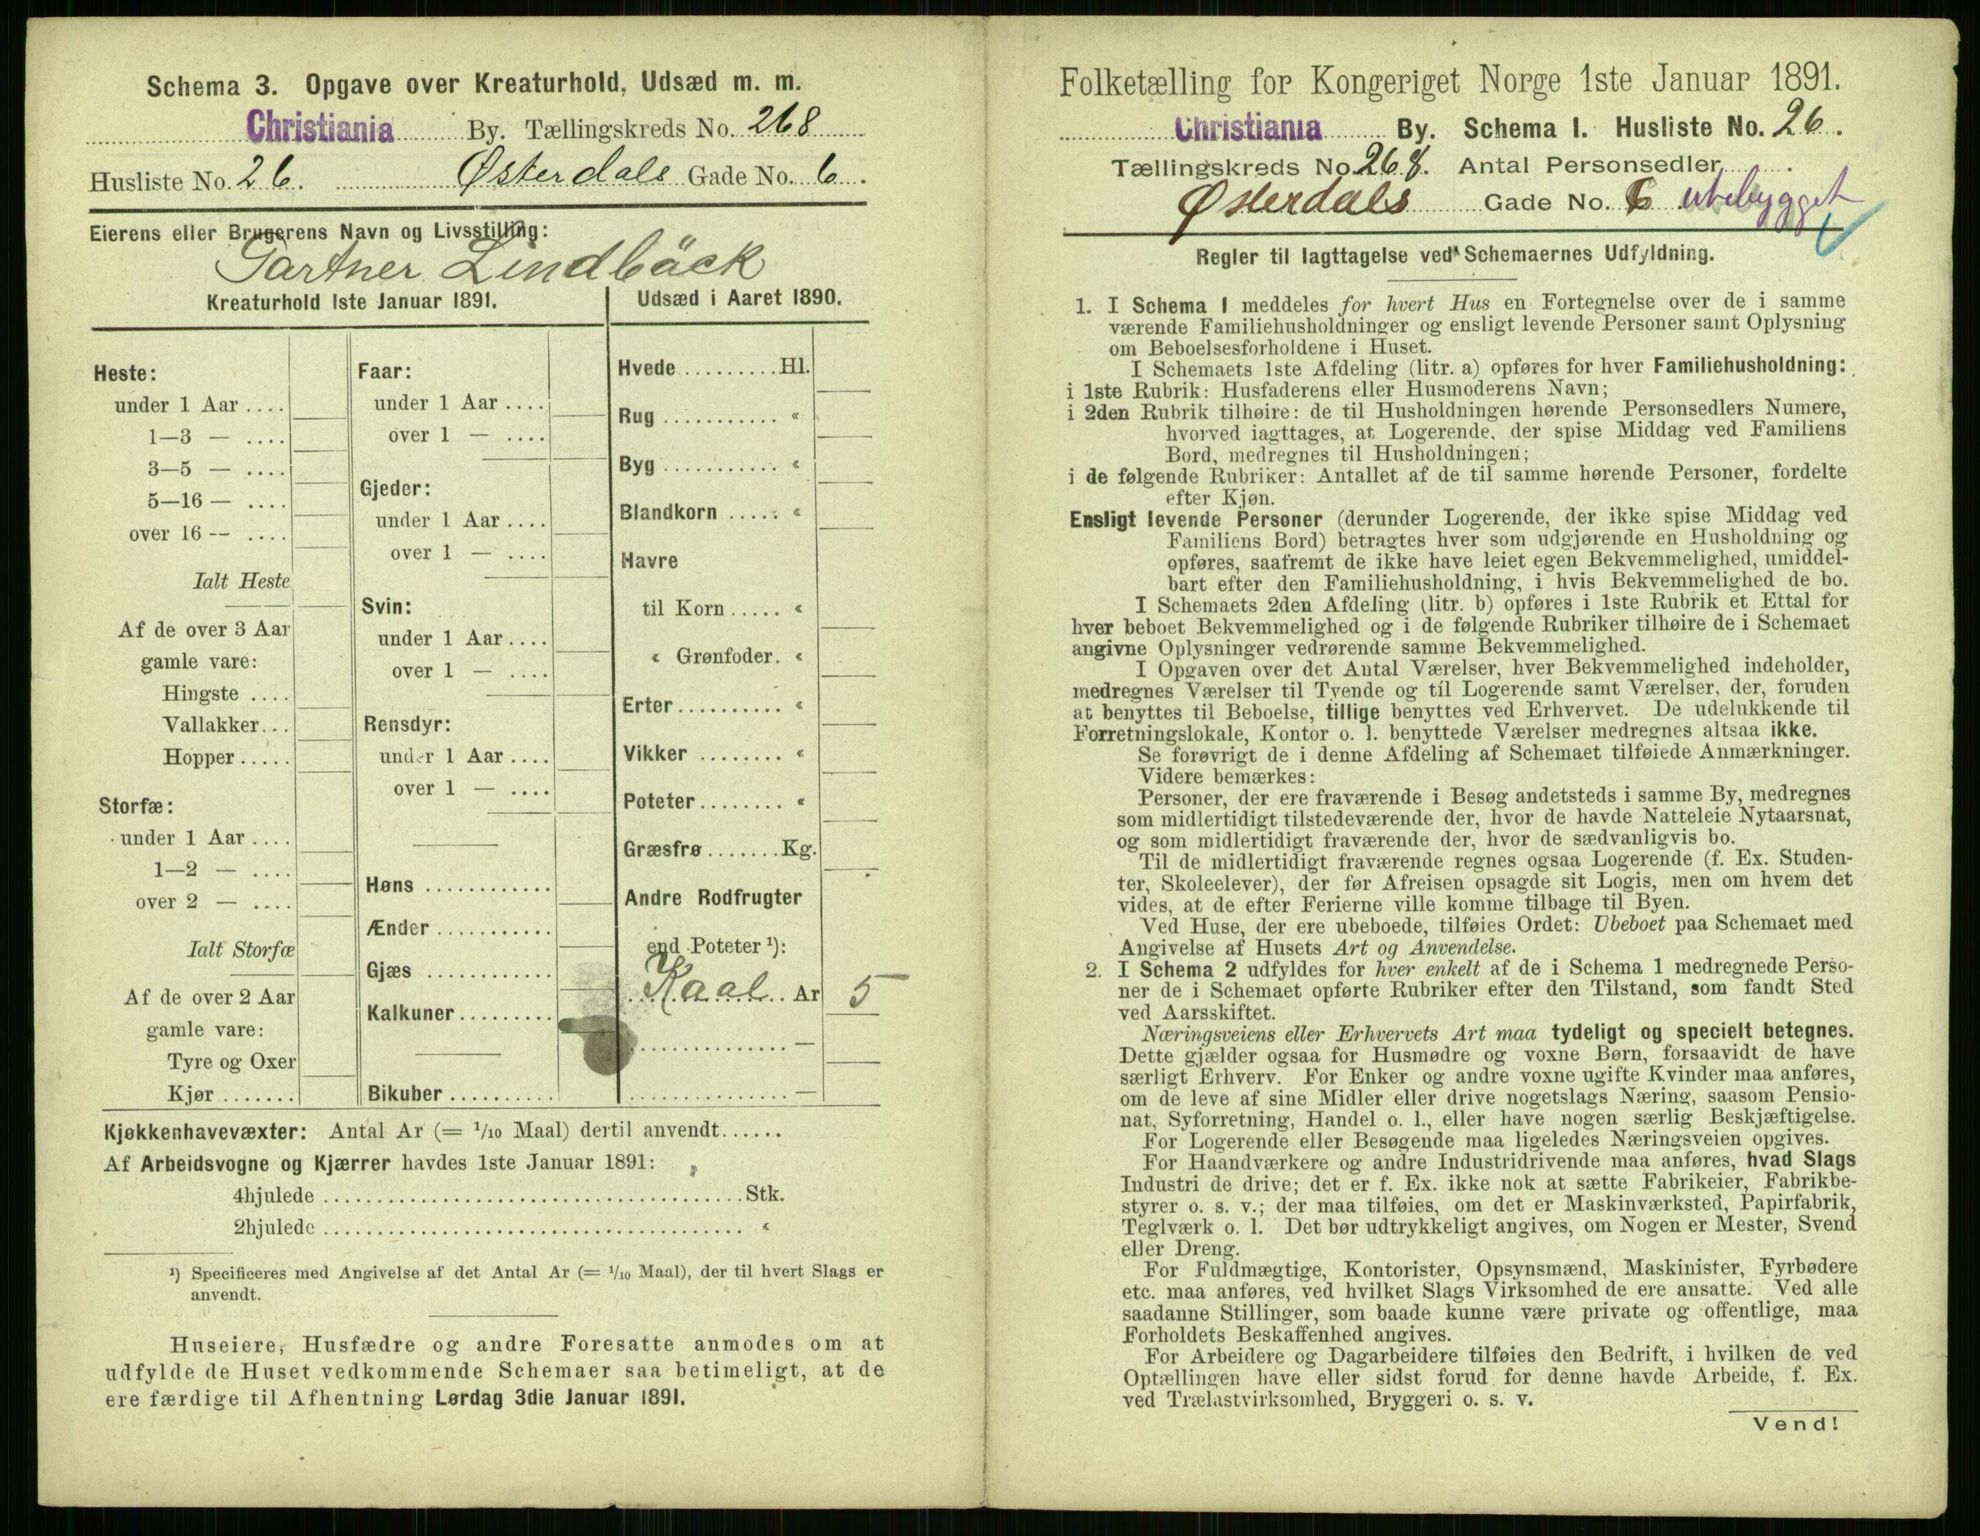 Schema 3. Opgave over Kreaturhold, Udsæd m. m.
Christiania By. Tællingskreds No. 268
Husliste No. 26. Østerdals Gade No. 6.
Eierens eller Brugerens Navn og Livsstilling:
Gartner Lindbäck
Kreaturhold 1ste Januar 1891.
Heste:
under 1 Aar ....
1—3 — ....
3—5 — ....
5—16 — ....
over 16 -- ....
Ialt Heste
Af de over 3 Aar
gamle vare:
Hingste ....
Vallakker...
Hopper.....
Storfæ:
under 1 Aar ....
1—2 — ....
over 2 — ....
Ialt Storfæ
Af de over 2 Aar
gamle vare:
Tyre og Oxer
Kjør.......
Faar:
under 1 Aar ....
over 1 — ....
Gjeder:
under 1 Aar ....
over 1 — ....
Svin:
under 1 Aar ....
over 1 — ....
Rensdyr:
under 1 Aar ....
over 1 — ....
Høns ............
Ænder...........
Gjæs ............
Kalkuner.........
Bikuber..........
Udsæd i Aaret 1890.
Hvede .........Hl.
Rug ........... «
Byg ........... «
Blandkorn ..... «
Havre
til Korn..... «
« Grønfoder. «
Erter.......... «
Vikker ........ «
Poteter........ «
Græsfrø.......Kg.
Andre Rodfrugter
end Poteter ¹):
Kaal Ar 5
............... —
............... —
Kjøkkenhavevæxter: Antal Ar (= 1/10 Maal) dertil anvendt......
Af Arbeidsvogne og Kjærrer havdes 1ste Januar 1891:
4hjulede ....................................Stk.
2hjulede .................................... «
¹) Specificeres med Angivelse af det Antal Ar (= 1/10 Maal), der til hvert Slags er
anvendt.
Huseiere, Husfædre og andre Foresatte anmodes om at
udfylde de Huset vedkommende Schemaer saa betimeligt, at de
ere færdige til Afhentning Lørdag 3die Januar 1891.
Folketælling for Kongeriget Norge 1ste Januar 1891.
Christiania By. Schema I. Husliste No. 26.
Tællingskreds No. 268. Antal Personsedler .
Østerdals Gade No. 6 ubebygget
Regler til Iagttagelse ved Schemaernes Udfyldning.
1. I Schema 1 meddeles for hvert Hus en Fortegnelse over de i samme
værende Familiehusholdninger og ensligt levende Personer samt Oplysning
om Beboelsesforholdene i Huset.
I Schemaets 1ste Afdeling (litr. a) opføres for hver Familiehusholdning:
i 1ste Rubrik: Husfaderens eller Husmoderens Navn;
i 2den Rubrik tilhøire: de til Husholdningen hørende Personsedlers Numere,
hvorved iagttages, at Logerende, der spise Middag ved Familiens
Bord, medregnes til Husholdningen;
i de følgende Rubriker: Antallet af de til samme hørende Personer, fordelte
efter Kjøn.
Ensligt levende Personer (derunder Logerende, der ikke spise Middag ved
Familiens Bord) betragtes hver som udgjørende en Husholdning og
opføres, saafremt de ikke have leiet egen Bekvemmelighed, umiddel-
bart efter den Familiehusholdning, i hvis Bekvemmelighed de bo.
I Schemaets 2den Afdeling (litr. b) opføres i 1ste Rubrik et Ettal for
hver beboet Bekvemmelighed og i de følgende Rubriker tilhøire de i Schemaet
angivne Oplysninger vedrørende samme Bekvemmelighed.
I Opgaven over det Antal Værelser, hver Bekvemmelighed indeholder,
medregnes Værelser til Tyende og til Logerende samt Værelser, der, foruden
at benyttes til Beboelse, tillige benyttes ved Erhvervet. De udelukkende til
Forretningslokale, Kontor o. l. benyttede Værelser medregnes altsaa ikke.
Se forøvrigt de i denne Afdeling af Schemaet tilføiede Anmærkninger.
Videre bemærkes:
Personer, der ere fraværende i Besøg andetsteds i samme By, medregnes
som midlertidigt tilstedeværende der, hvor de havde Natteleie Nytaarsnat,
og som midlertidigt fraværende der, hvor de sædvanligvis bo.
Til de midlertidigt fraværende regnes ogsaa Logerende (f. Ex. Studen-
ter, Skoleelever), der før Afreisen opsagde sit Logis, men om hvem det
vides, at de efter Ferierne ville komme tilbage til Byen.
Ved Huse, der ere ubeboede, tilføies Ordet: Ubeboet paa Schemaet med
Angivelse af Husets Art og Anvendelse.
2. I Schema 2 udfyldes for hver enkelt af de i Schema 1 medregnede Perso-
ner de i Schemaet opførte Rubriker efter den Tilstand, som fandt Sted
ved Aarsskiftet.
Næringsveiens eller Erhvervets Art maa tydeligt og specielt betegnes.
Dette gjælder ogsaa for Husmødre og voxne Børn, forsaavidt de have
særligt Erhverv. For Enker og andre voxne ugifte Kvinder maa anføres,
om de leve af sine Midler eller drive nogetslags Næring, saasom Pensio-
nat, Syforretning, Handel o. l., eller have nogen særlig Beskjæftigelse.
For Logerende eller Besøgende maa ligeledes Næringsveien opgives.
For Haandværkere og andre Industridrivende maa anføres, hvad Slags
Industri de drive; det er f. Ex. ikke nok at sætte Fabrikeier, Fabrikbe-
styrer o. s. v.; der maa tilføies, om det er Maskinværksted, Papirfabrik,
Teglværk o. l. Det bør udtrykkeligt angives, om Nogen er Mester, Svend
eller Dreng.
For Fuldmægtige, Kontorister, Opsynsmænd, Maskinister, Fyrbødere
etc. maa anføres, ved hvilket Slags Virksomhed de ere ansatte. Ved alle
saadanne Stillinger, som baade kunne være private og offentlige, maa
Forholdets Beskaffenhed angives.
For Arbeidere og Dagarbeidere tilføies den Bedrift, i hvilken de ved
Optællingen have eller sidst forud for denne havde Arbeide, f. Ex.
ved Trælastvirksomhed, Bryggeri o. s. v.
Vend!